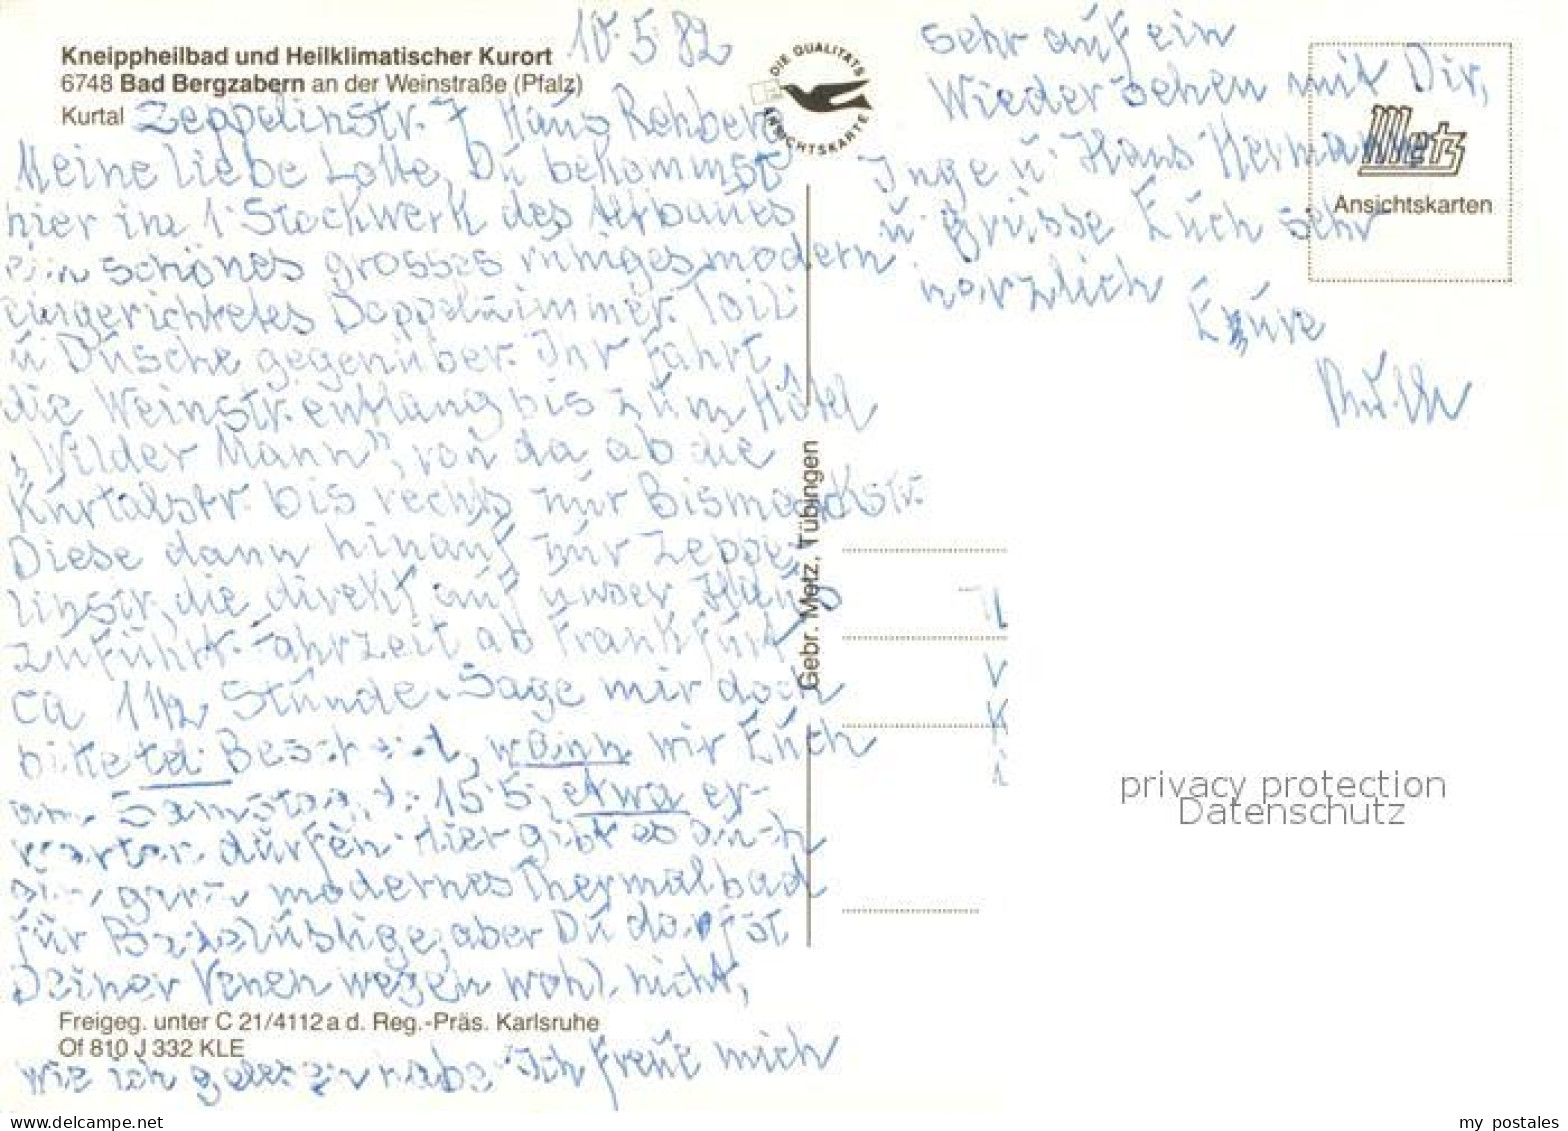 10.5.82
Kneippheilbad und Heilklimatischer Kurort
6748 Bad Bergzabern an der Weinstraße (Pfalz)
Kurtal
Zeppelinstr. 7 Haus Rehberg
Meine liebe Lotte, Du bekommst
hier im 1. Stockwerk des Altbaues
ein schönes grosses ruhiges modern
eingerichtetes Doppelzimmer. Toil.
u Dusche gegenüber. Ihr fahrt
die Weinstr. entlang bis zum Hotel
"Wilder Mann", von da ab die
Kurtalstr. bis rechts zur Bismarckstr.
Diese dann hinauf zur Zeppe-
linstr, die direkt auf unser Haus
zuführt. Fahrzeit ab Frankfurt
ca 1 1/2 Stunde. Sage mir doch
bitte Bescheid, wann wir Euch
am Samstag, d. 15.5, etwa er-
warten dürfen. Hier gibt es auch
ein modernes Thermalbad
für Badelustige, aber Du darfst
Deiner Venen wegen wohl nicht,
Freigeg. unter C 21/4112 a d. Reg.-Präs. Karlsruhe
Of 810 J 332 KLE
wie ich habe. Ich freue mich
sehr auf ein
Wiedersehen mit Dir,
Inge u. Hans Hermann
u. grüsse Euch sehr
herzlich
Eure
DIE QUALITÄTS
ANSICHTSKARTE
Metz
Ansichtskarten
Gebr. Metz, Tübingen
V
K
privacy protection
Datenschutz
my postales